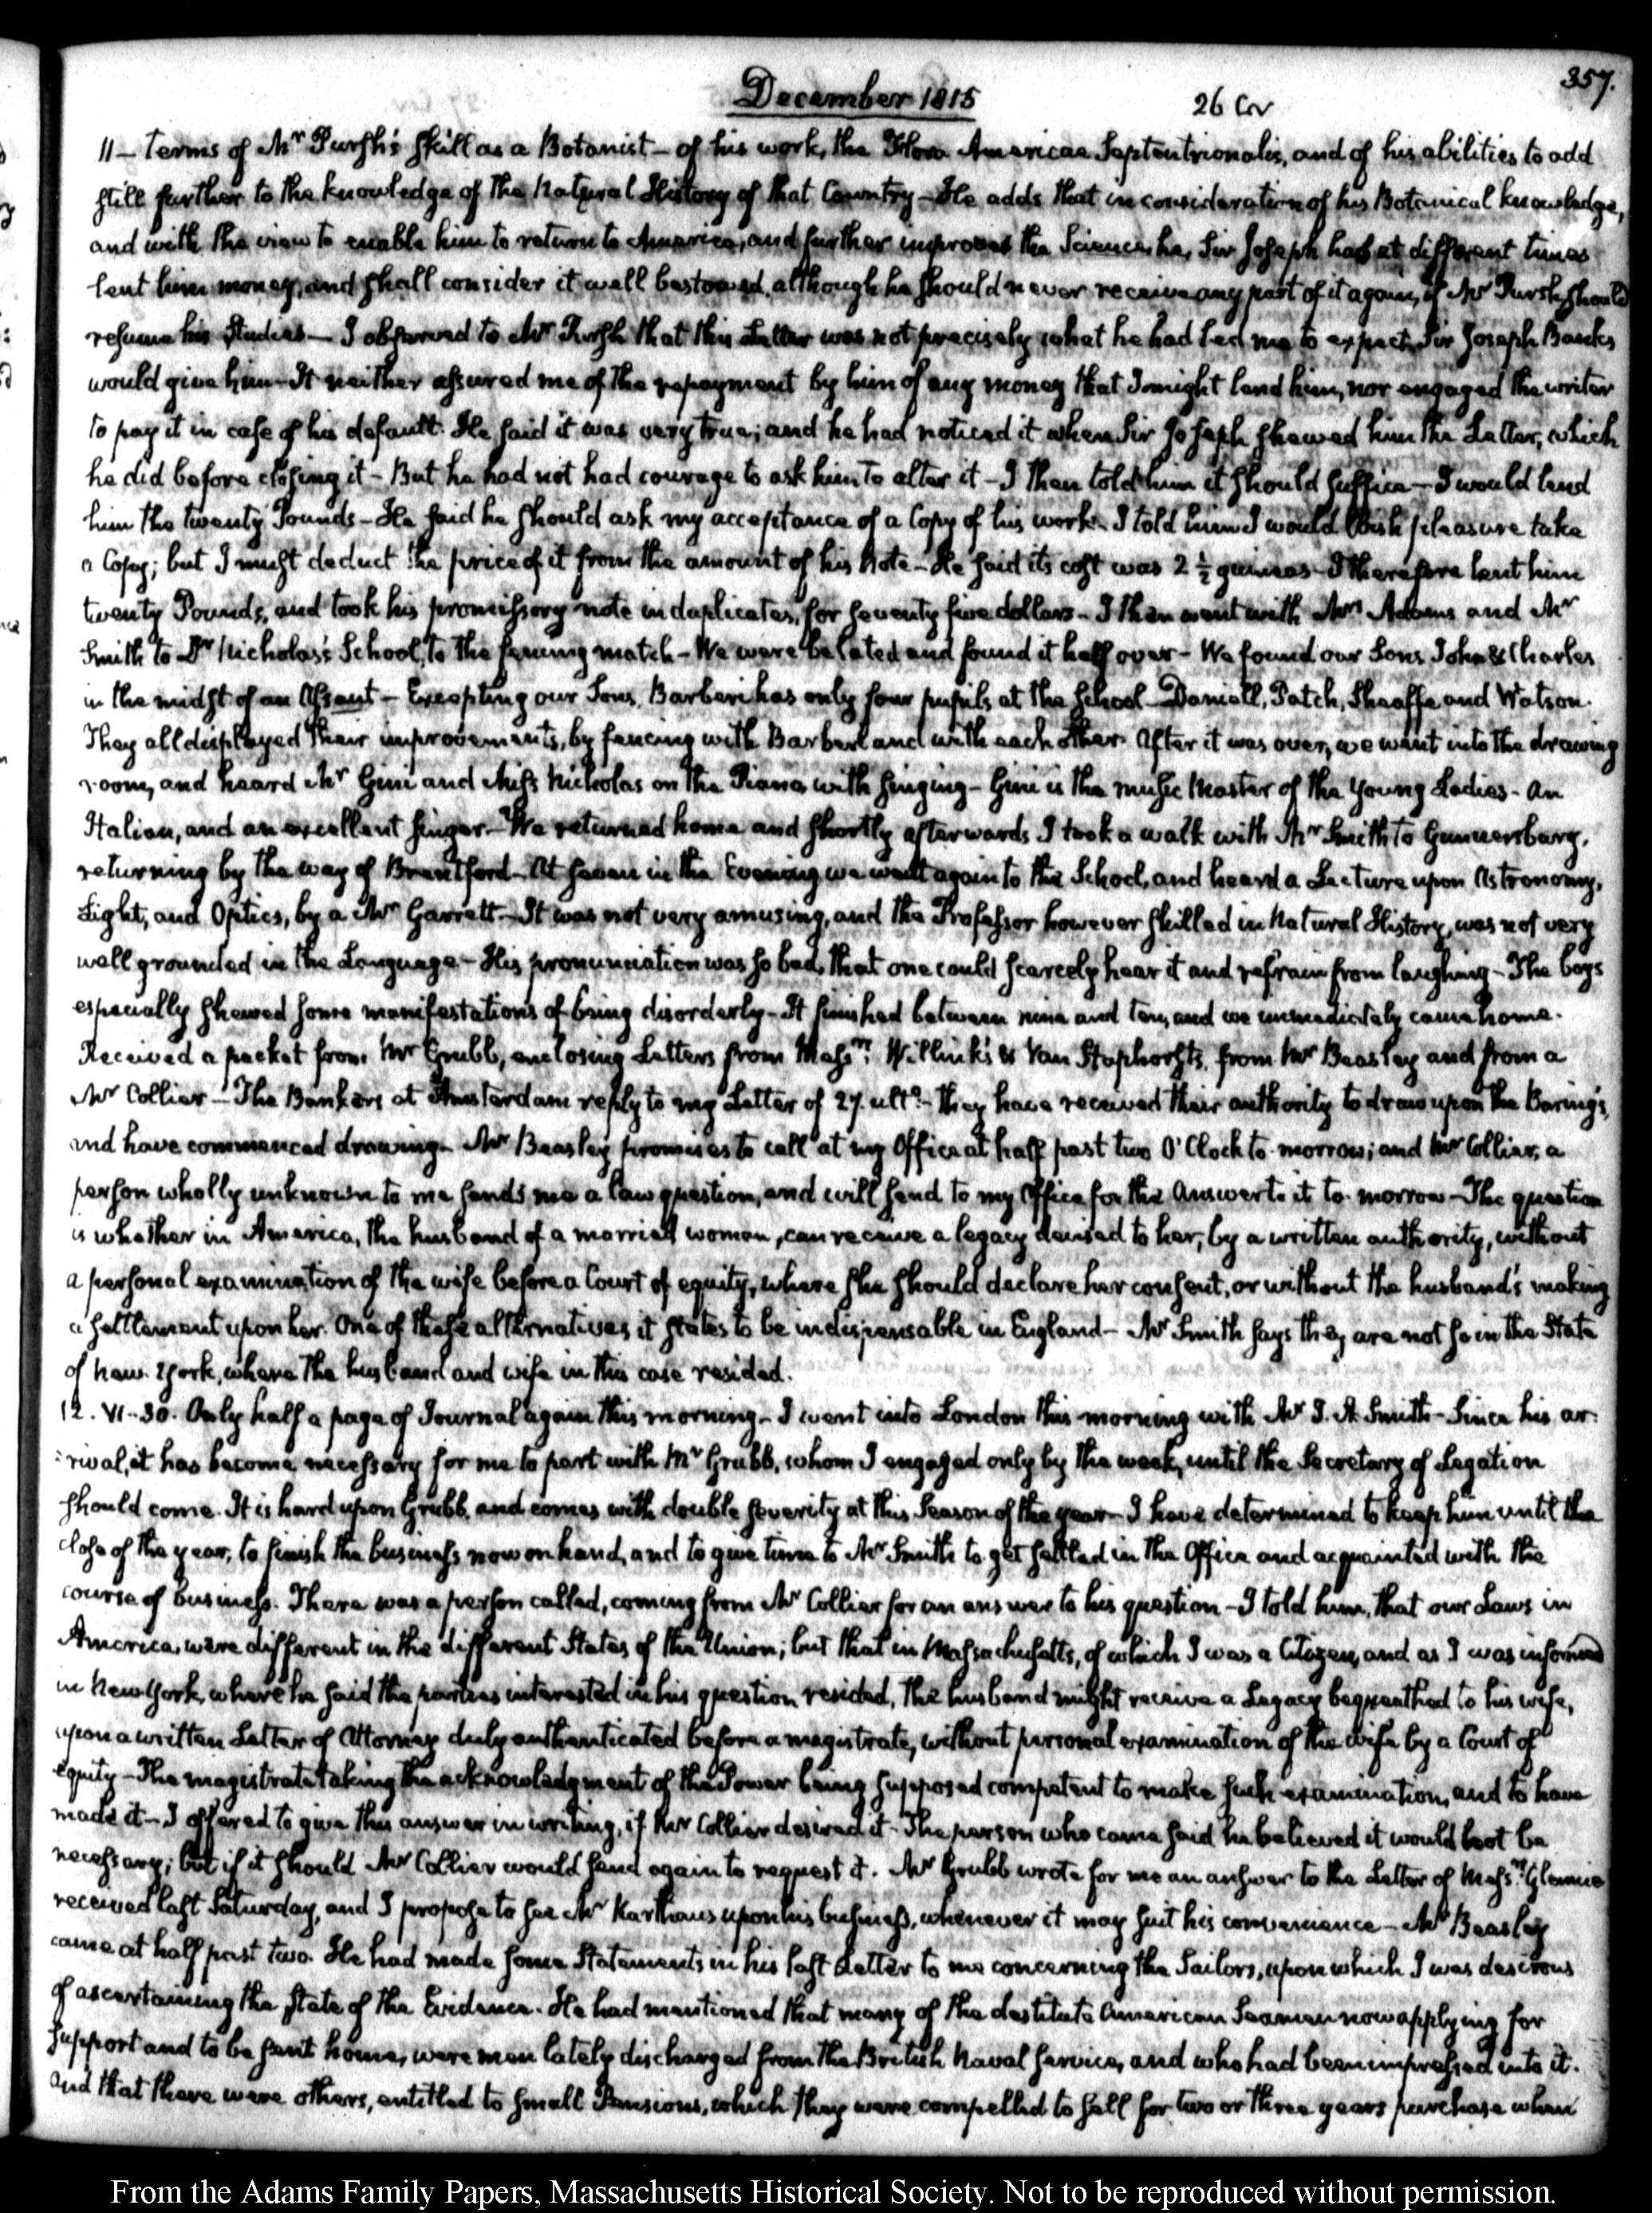 357.
December 1815
26 Cor
11 — Terms of Mr Pursh's skill as a Botanist — of his work, the Flora Americae Septentrionalis, and of his abilities to add
still further to the knowledge of the Natural History of that Country — He adds that in consideration of his Botanical knowledge,
and with the view to enable him to return to America, and further improve the Science, he, Sir Joseph has at different times
lent him money, and shall consider it well bestowed, although he should never receive any part of it again, if Mr Pursh should
resume his studies — I observed to Mr Pursh that this Letter was not precisely what he had led me to expect Sir Joseph Banks
would give him — It neither assured me of the repayment by him of any money that I might lend him, nor engaged the writer
to pay it in case of his default. He said it was very true; and he had noticed it when Sir Joseph shewed him the Letter, which
he did before closing it — But he had not had courage to ask him to alter it — I then told him it should suffice — I would lend
him the twenty Pounds — He said he should ask my acceptance of a Copy of his work. I told him I would with pleasure take
a Copy; but I must deduct the price of it from the amount of his Note — He said its cost was 2 ½ guineas — I therefore lent him
twenty Pounds, and took his promissory note in duplicates, for seventy five dollars — I then went with Mrs Adams and Mr
Smith to Dr Nicholas's School, to the fencing match — We were belated and found it half over — We found our Sons John & Charles
in the midst of an Assaut — Excepting our Sons, Barberi has only four pupils at the School — Daniell, Patch, Shaaffe and Watson.
They all displayed their improvements, by fencing with Barberi and with each other. After it was over, we went into the drawing
room, and heard Mr Gini and Miss Nicholas on the Piano, with singing — Gini is the music Master of the Young Ladies — An
Italian, and an excellent singer — We returned home and shortly afterwards I took a walk with Mr Smith to Gunnersbury,
returning by the way of Brentford — At seven in the Evening we went again to the School, and heard a Lecture upon Astronomy,
Light, and Optics, by a Mr Garrett — It was not very amusing, and the Professor however skilled in Natural History, was not very
well grounded in the Language — His pronunciation was so bad, that one could scarcely hear it and refrain from laughing — The boys
especially shewed some manifestations of being disorderly — It finished between nine and ten, and we immediately came home.
Received a packet from Mr Grubb, enclosing Letters from Messrs Willink's & Van Staphorsts, from Mr Beasley and from a
Mr Collier — The Bankers at Amsterdam reply to my Letter of 27. ulto — they have received their authority to draw upon the Barings,
and have commenced drawing — Mr Beasley promises to call at my Office at half past two O'Clock to-morrow; and Mr Collier, a
person wholly unknown to me sends me a law question, and will send to my Office for the Answer to it to-morrow — The question
is whether in America, the husband of a married woman, can receive a legacy devised to her, by a written authority, without
a personal examination of the wife before a Court of equity, where she should declare her consent, or without the husband's making
a settlement upon her. One of these alternatives it states to be indispensable in England — Mr Smith says they are not so in the State
of New-York, where the husband and wife in this case resided.
12. VI-30. Only half a page of Journal again this morning — I went into London this morning with Mr J. A. Smith — Since his ar-
rival, it has become necessary for me to part with Mr Grubb, whom I engaged only by the week, until the Secretary of Legation
should come. It is hard upon Grubb, and comes with double severity at this Season of the year — I have determined to keep him until the
close of the year, to finish the business now on hand, and to give time to Mr Smith to get settled in the Office and acquainted with the
course of business. There was a person called, coming from Mr Collier for an answer to his question — I told him, that our Laws in
America, were different in the different States of the Union; but that in Massachusetts, of which I was a Citizen, and as I was informed
in New York, where he said the parties interested in his question resided, the husband might receive a Legacy bequeathed to his wife,
upon a written Letter of Attorney duly authenticated before a magistrate, without personal examination of the wife by a Court of
equity — The magistrate taking the acknowledgment of the Power being supposed competent to make such examination, and to have
made it — I offered to give this answer in writing, if Mr Collier desired it — The person who came said he believed it would not be
necessary; but if it should Mr Collier would send again to request it. Mr Grubb wrote for me an answer to the Letter of Messrs Glennie
received last Saturday, and I propose to see Mr Karthaus upon his business, whenever it may suit his convenience — Mr Beasley
came at half past two. He had made some Statements in his last Letter to me concerning the Sailors, upon which I was desirous
of ascertaining the state of the Evidence. He had mentioned that many of the destitute American Seamen now applying for
support and to be sent home, were men lately discharged from the British Naval service, and who had been impressed into it.
And that there were others, entitled to small Pensions, which they were compelled to sell for two or three years purchase when
From the Adams Family Papers, Massachusetts Historical Society. Not to be reproduced without permission.